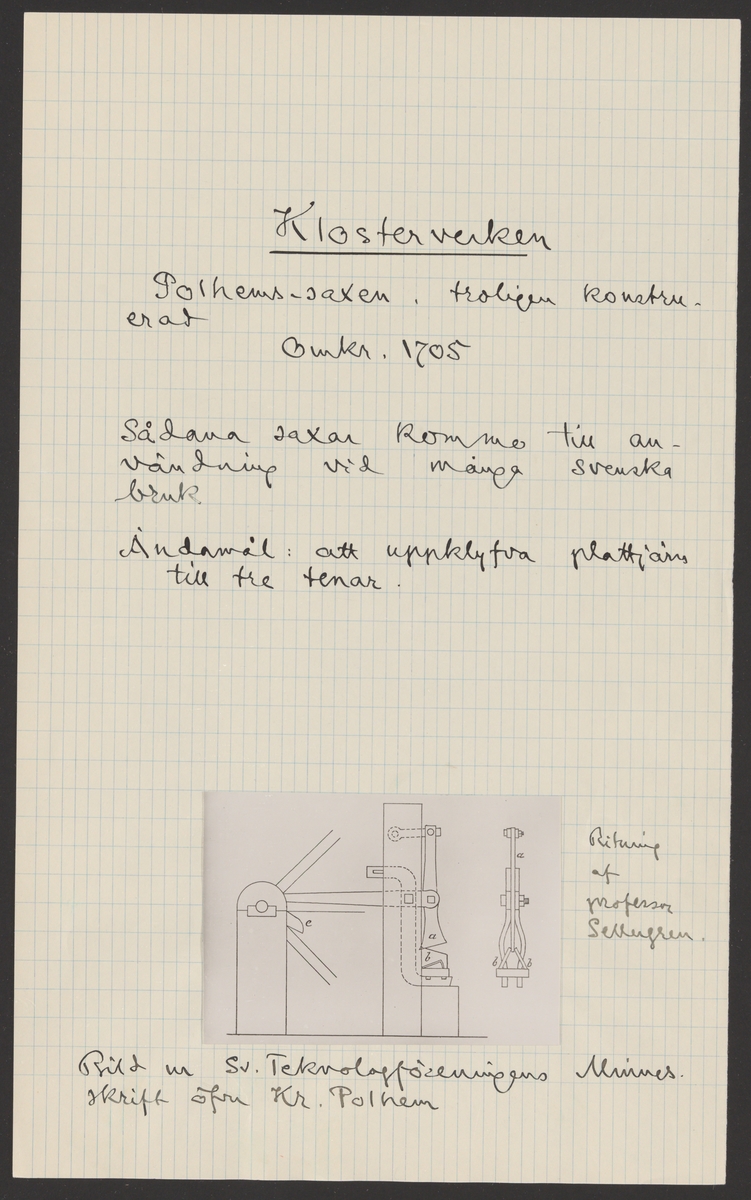 Klosterverken
Polhems-saxen, troligen konstru-
erad
Omkr. 1705
Sådana saxar kommo till an-
vändning vid många svenska
bruk.
Ändamål: att uppklyfva plattjärn
till tre tenar.
a
a
b
b
b
e
Ritning
af
professor
Sellergren.
Bild ur Sv. Teknologföreningens Minnes-
skrift öfver Kr. Polhem